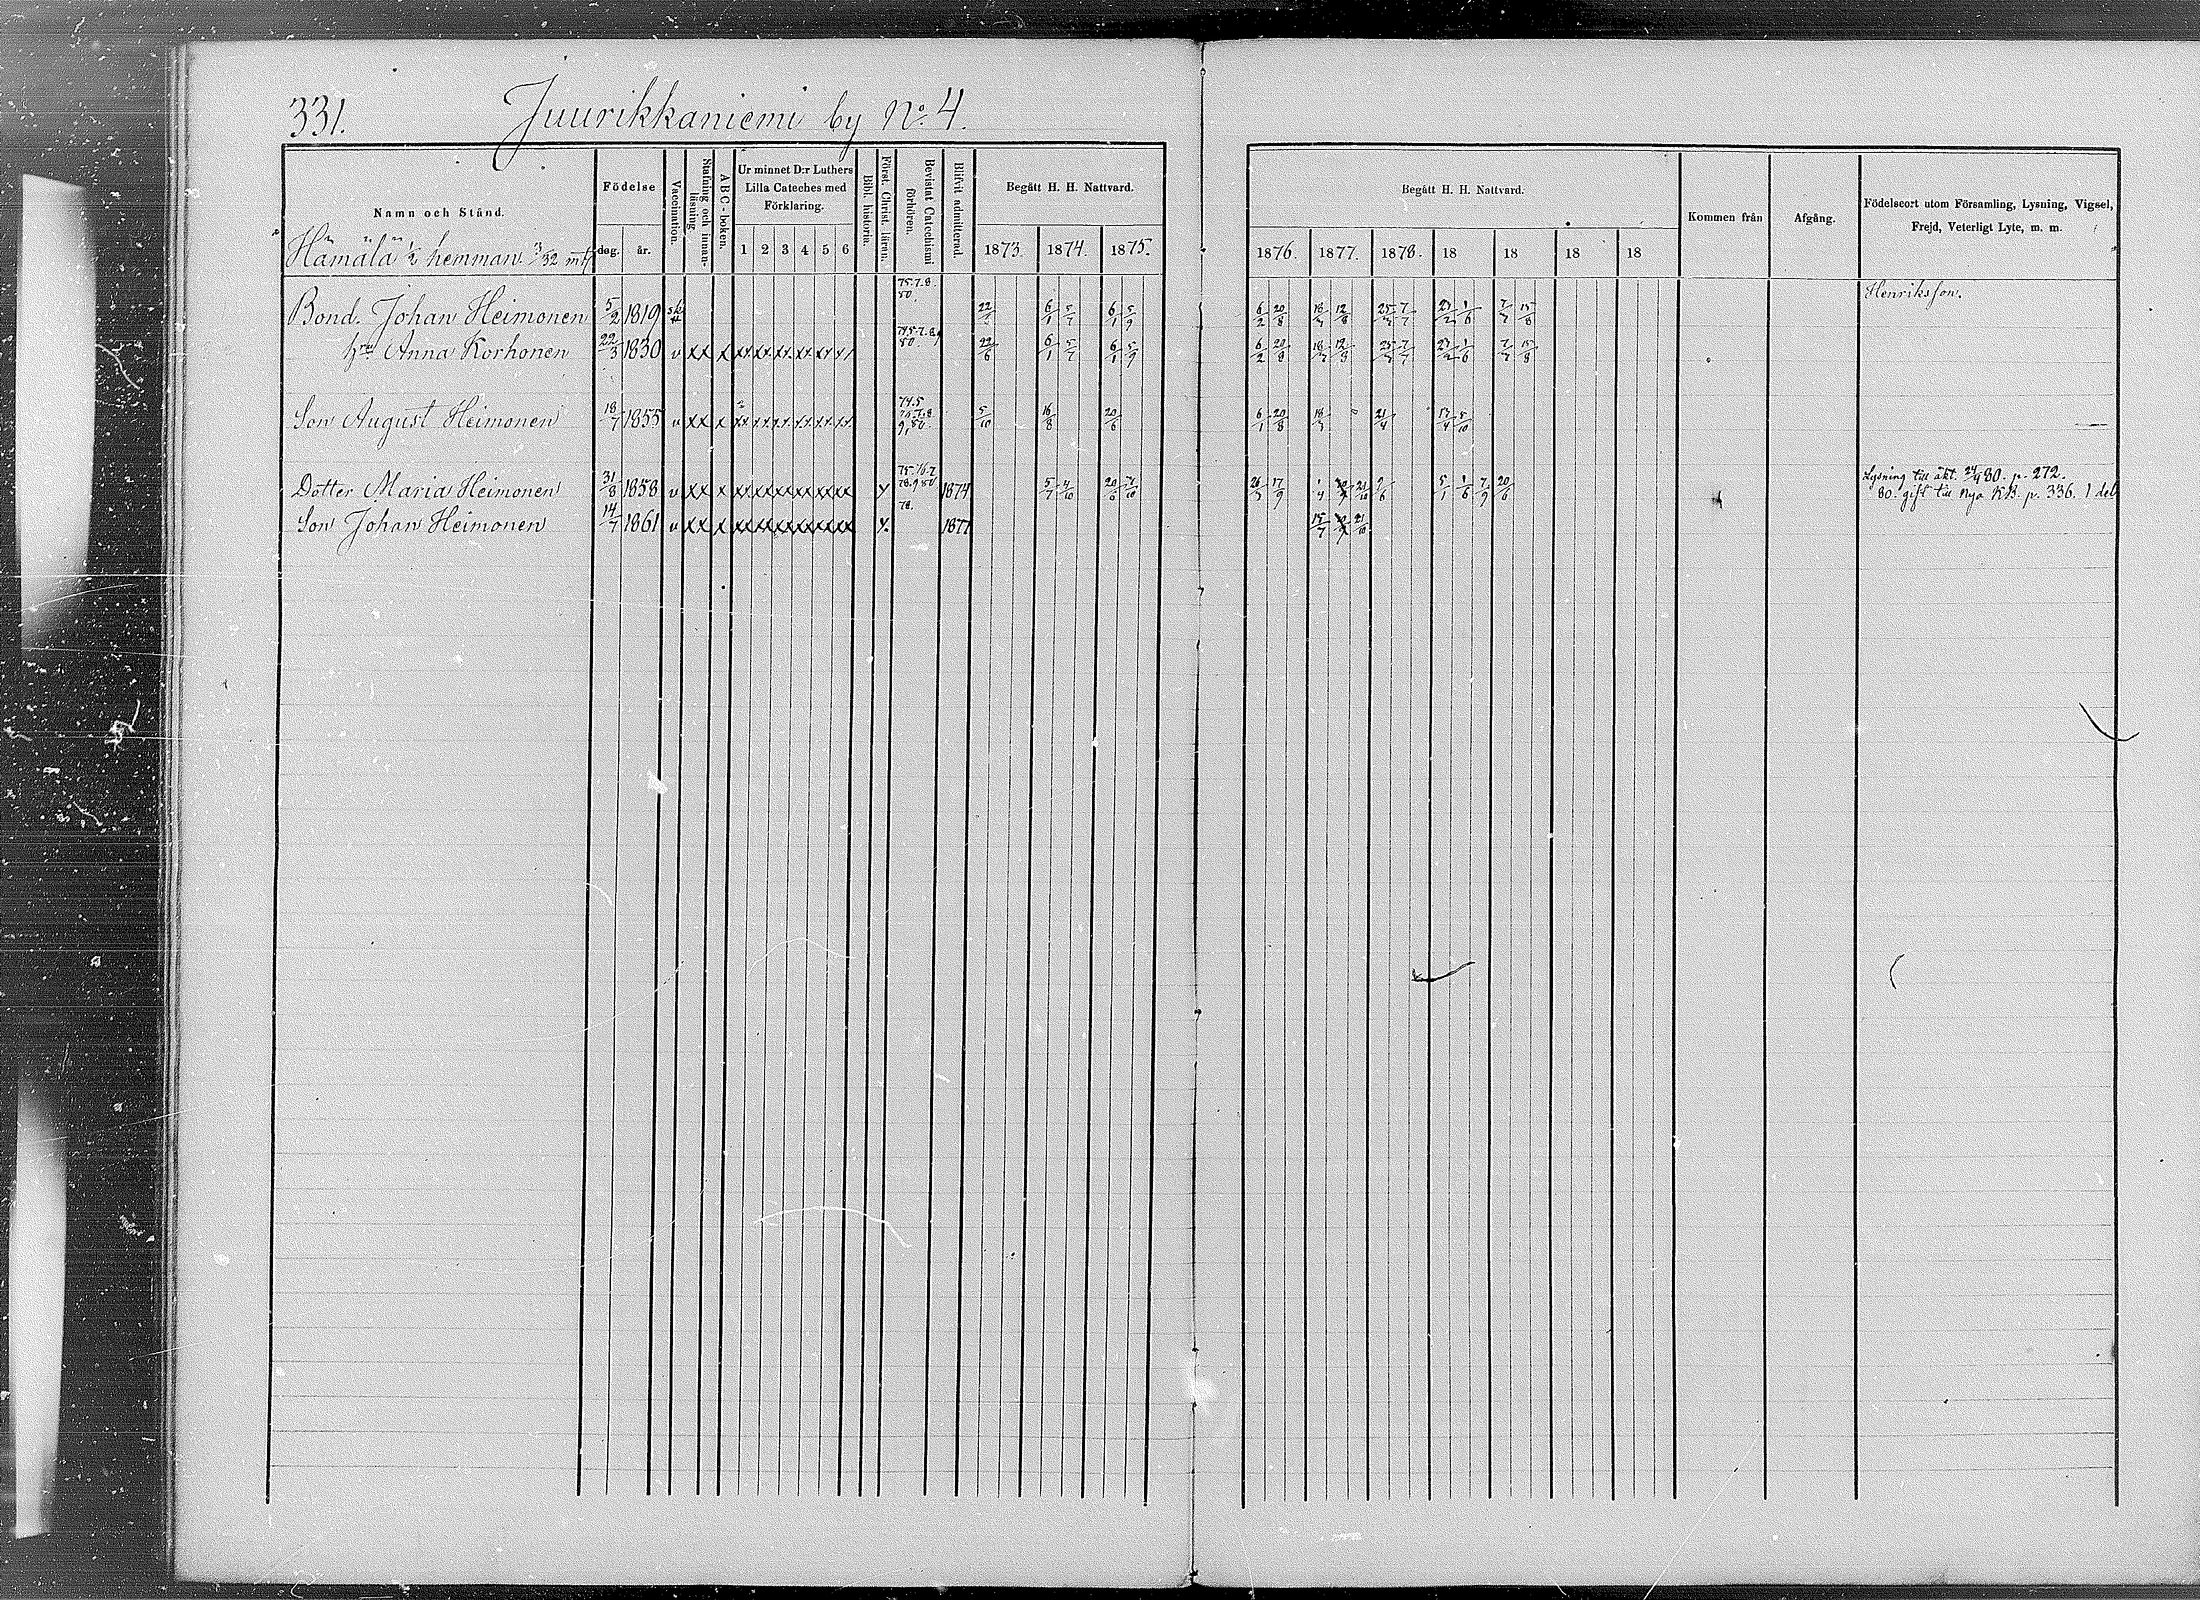 331. Juurikkaniemi by No. 4.
Namn och Stånd.
Födelse
dag. år.
Vaccination.
Stafning och innanläsning
A B C - boken.
Ur minnet D:r Luthers
Lilla Cateches med
Förklaring.
1 2 3 4 5 6
Bibl. historia.
Först. Christ. läran.
Bevistat Catechismi förhören.
Blifvit admitterad.
Begått H. H. Nattvard.
1873. 1874. 1875.
Begått H. H. Nattvard.
1876. 1877. 1878. 18 18 18 18
Kommen från
Afgång.
Födelseort utom Församling, Lysning, Vigsel,
Frejd, Veterligt Lyte, m. m.
Hämälä 1/2 hemman 3/32 mtl
75.7.8.
80. Henriksson.
Bond. Johan Heimonen 5/2 1819 22/6 6/1 5/7 6/1 5/9 6/2 20/8 18/3 12/8 25/3 7/7 23/2 1/6 7/3 15/8
hru Anna Korhonen 22/3 1830 v xx x xx xx xx xx xx 22/6 6/1 5/7 6/1 5/9 6/2 20/8 18/3 12/8 25/3 7/7 23/2 1/6 7/3 15/8
Son August Heimonen 18/7 1855 v xx x xx xx xx xx xx xx 5/10 16/8 20/6 6/1 20/8 18/3 21/4 13/4 5/10
Dotter Maria Heimonen 31/8 1858 v xx x xx xx xx xx xx xx y 1874 5/7 4/10 20/6 26/3 17/9 5/1 1/6 7/9 20/6 Lysning till äkt. 24/4 80. p. 272.
80. gift till Nya KB. p. 336. I del
78.
Son Johan Heimonen 14/7 1861 v xx x xx xx xx xx xx xx y. 1877 15/7 21/10